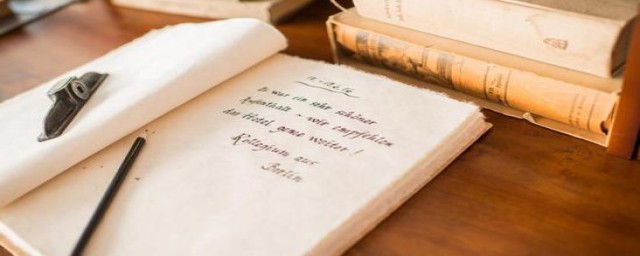 Es war ein sehr schöner
Aufenthalt - wir empfehlen
das Hotel gerne weiter!
Kollegium aus
Berlin